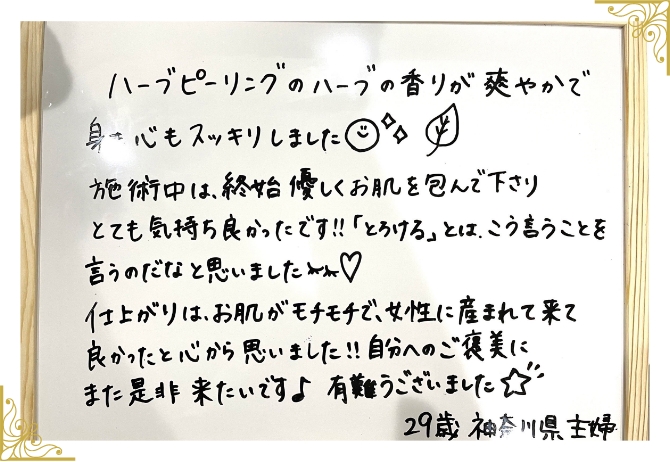 ハーブピーリングのハーブの香りが爽やかで
身も心もスッキリしました
施術中は、終始優しくお肌を包んで下さり
とても気持ち良かったです!!「とろける」とは、こう言うことを
言うのだなと思いました♡
仕上がりは、お肌がモチモチで、女性に産まれて来て
良かったと心から思いました!!自分へのご褒美に
また是非来たいです♪ 有難うございました☆
29歳 神奈川県主婦